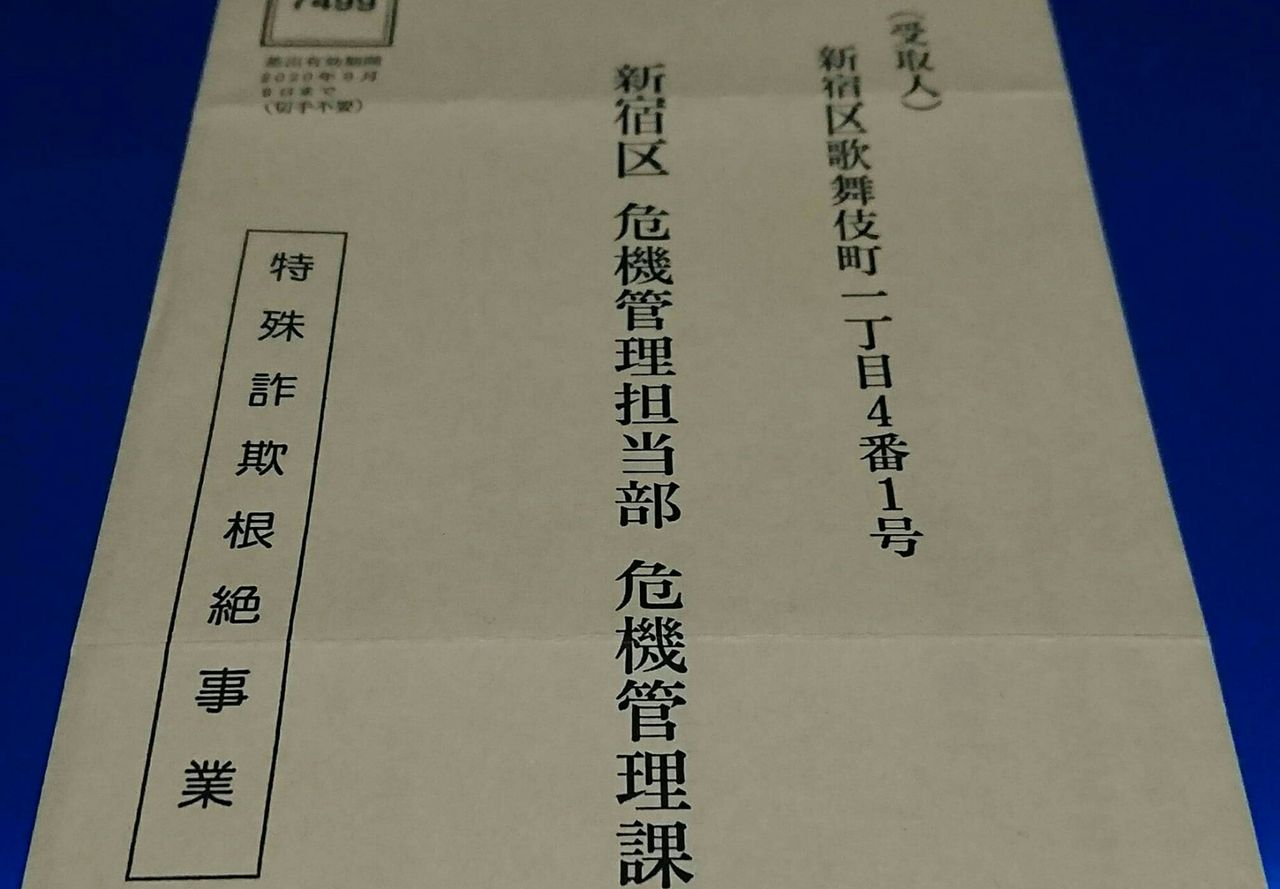 (受取人)
新宿区歌舞伎町一丁目4番1号
新宿区 危機管理担当部 危機管理課
7499
差出有効期間
2020年9月
8日まで
(切手不要)
特殊詐欺根絶事業